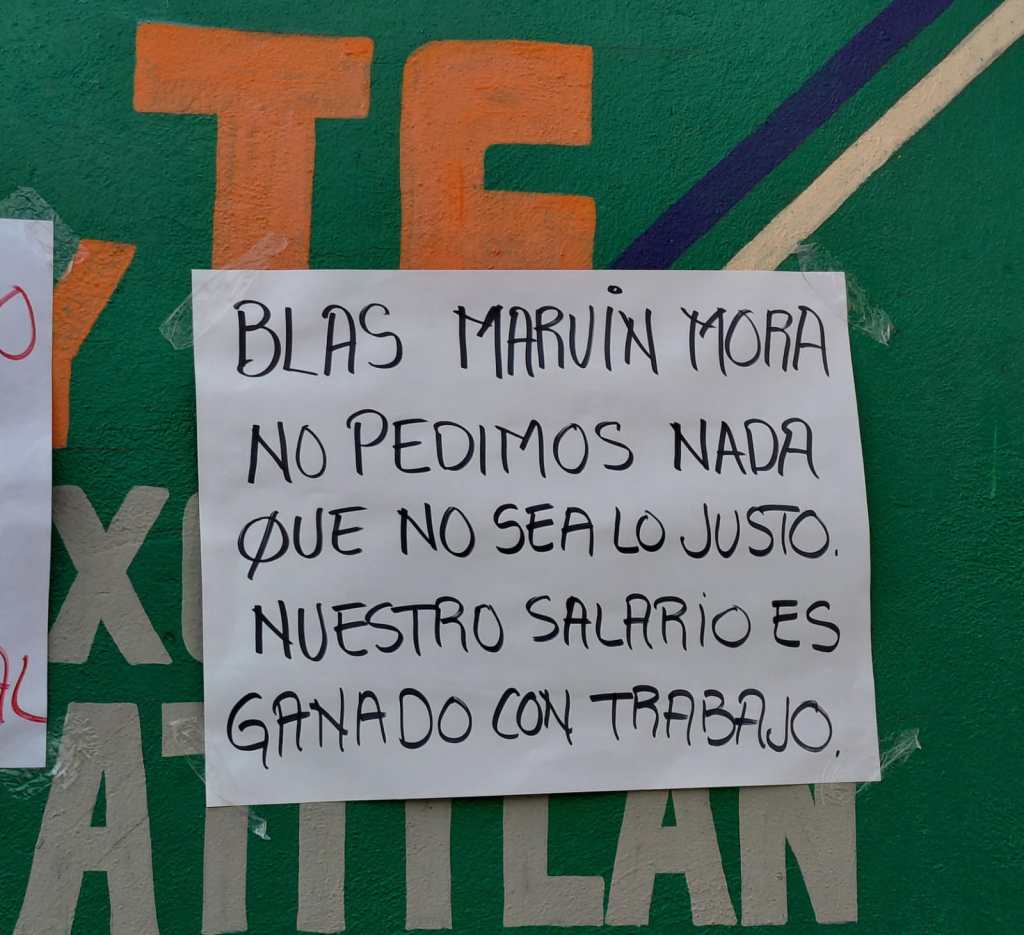 TE
BLAS MARVIN MORA
NO PEDIMOS NADA
QUE NO SEA LO JUSTO.
NUESTRO SALARIO ES
GANADO CON TRABAJO.